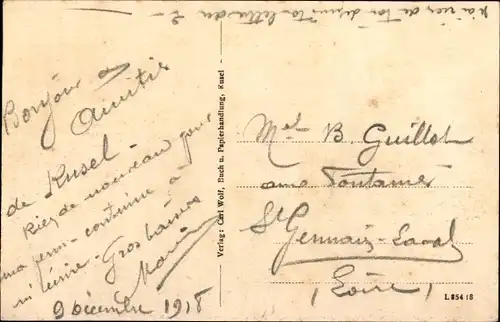 Bonjour &
Amitié
de Kusel -
Rien de nouveau pour
ma perm - continue à
m'écrire - Gros baisers
9 Décembre 1918
Verlag: Carl Wolf, Buch u. Papierhandlung, Kusel -
Mel B. Guillot
aux Fontaines
St Germain-Laval
(Loire)
L 854 18